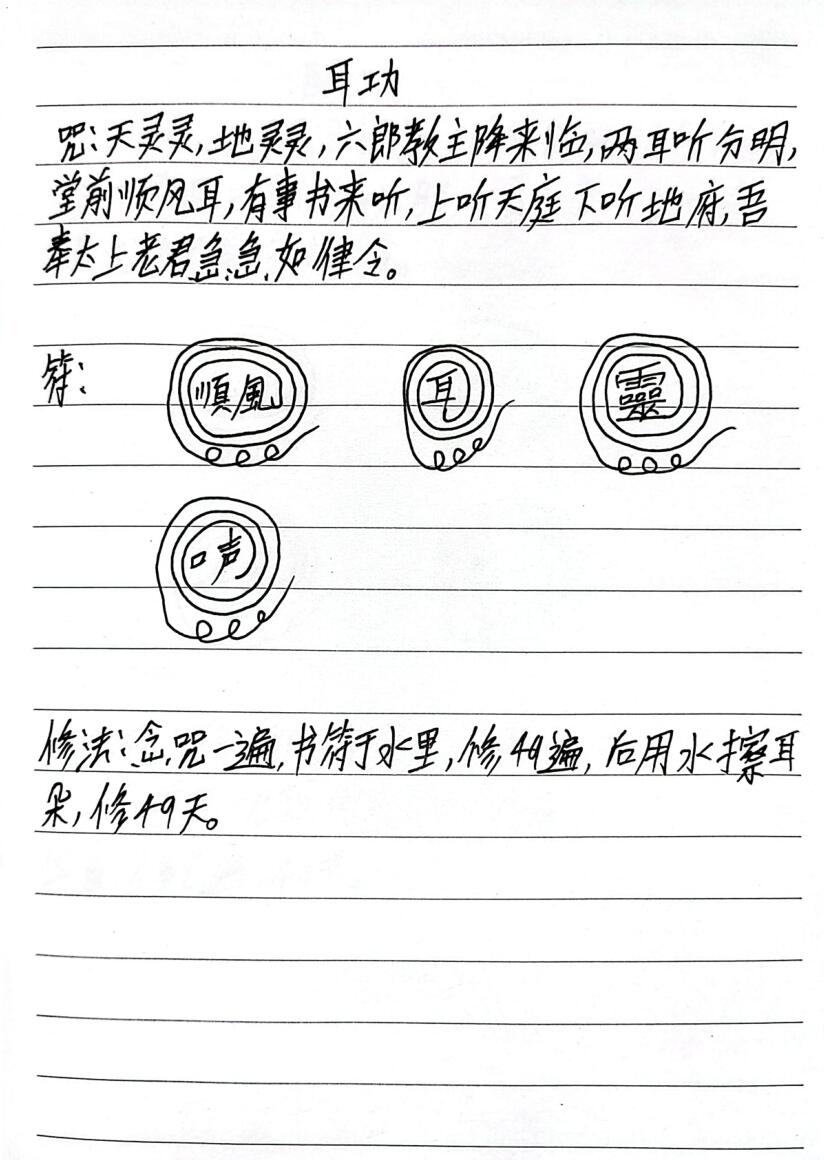 耳功
咒:天灵灵,地灵灵,六郎教主降来临,两耳听分明,
堂前顺风耳,有事书来听,上听天庭下听地府,吾
奉太上老君急急如律令。
符:
順風 耳 靈
口声
修法:念咒一遍,书符于水里,修49遍,后用水擦耳
朵,修49天。